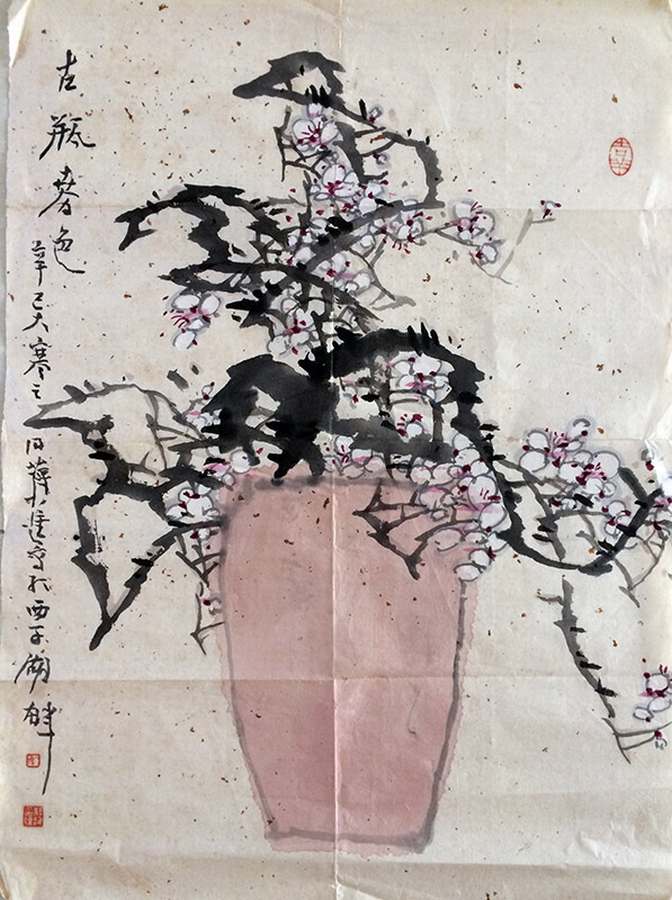 古瓶春色
辛巳大寒之日薛進寫於西子湖畔